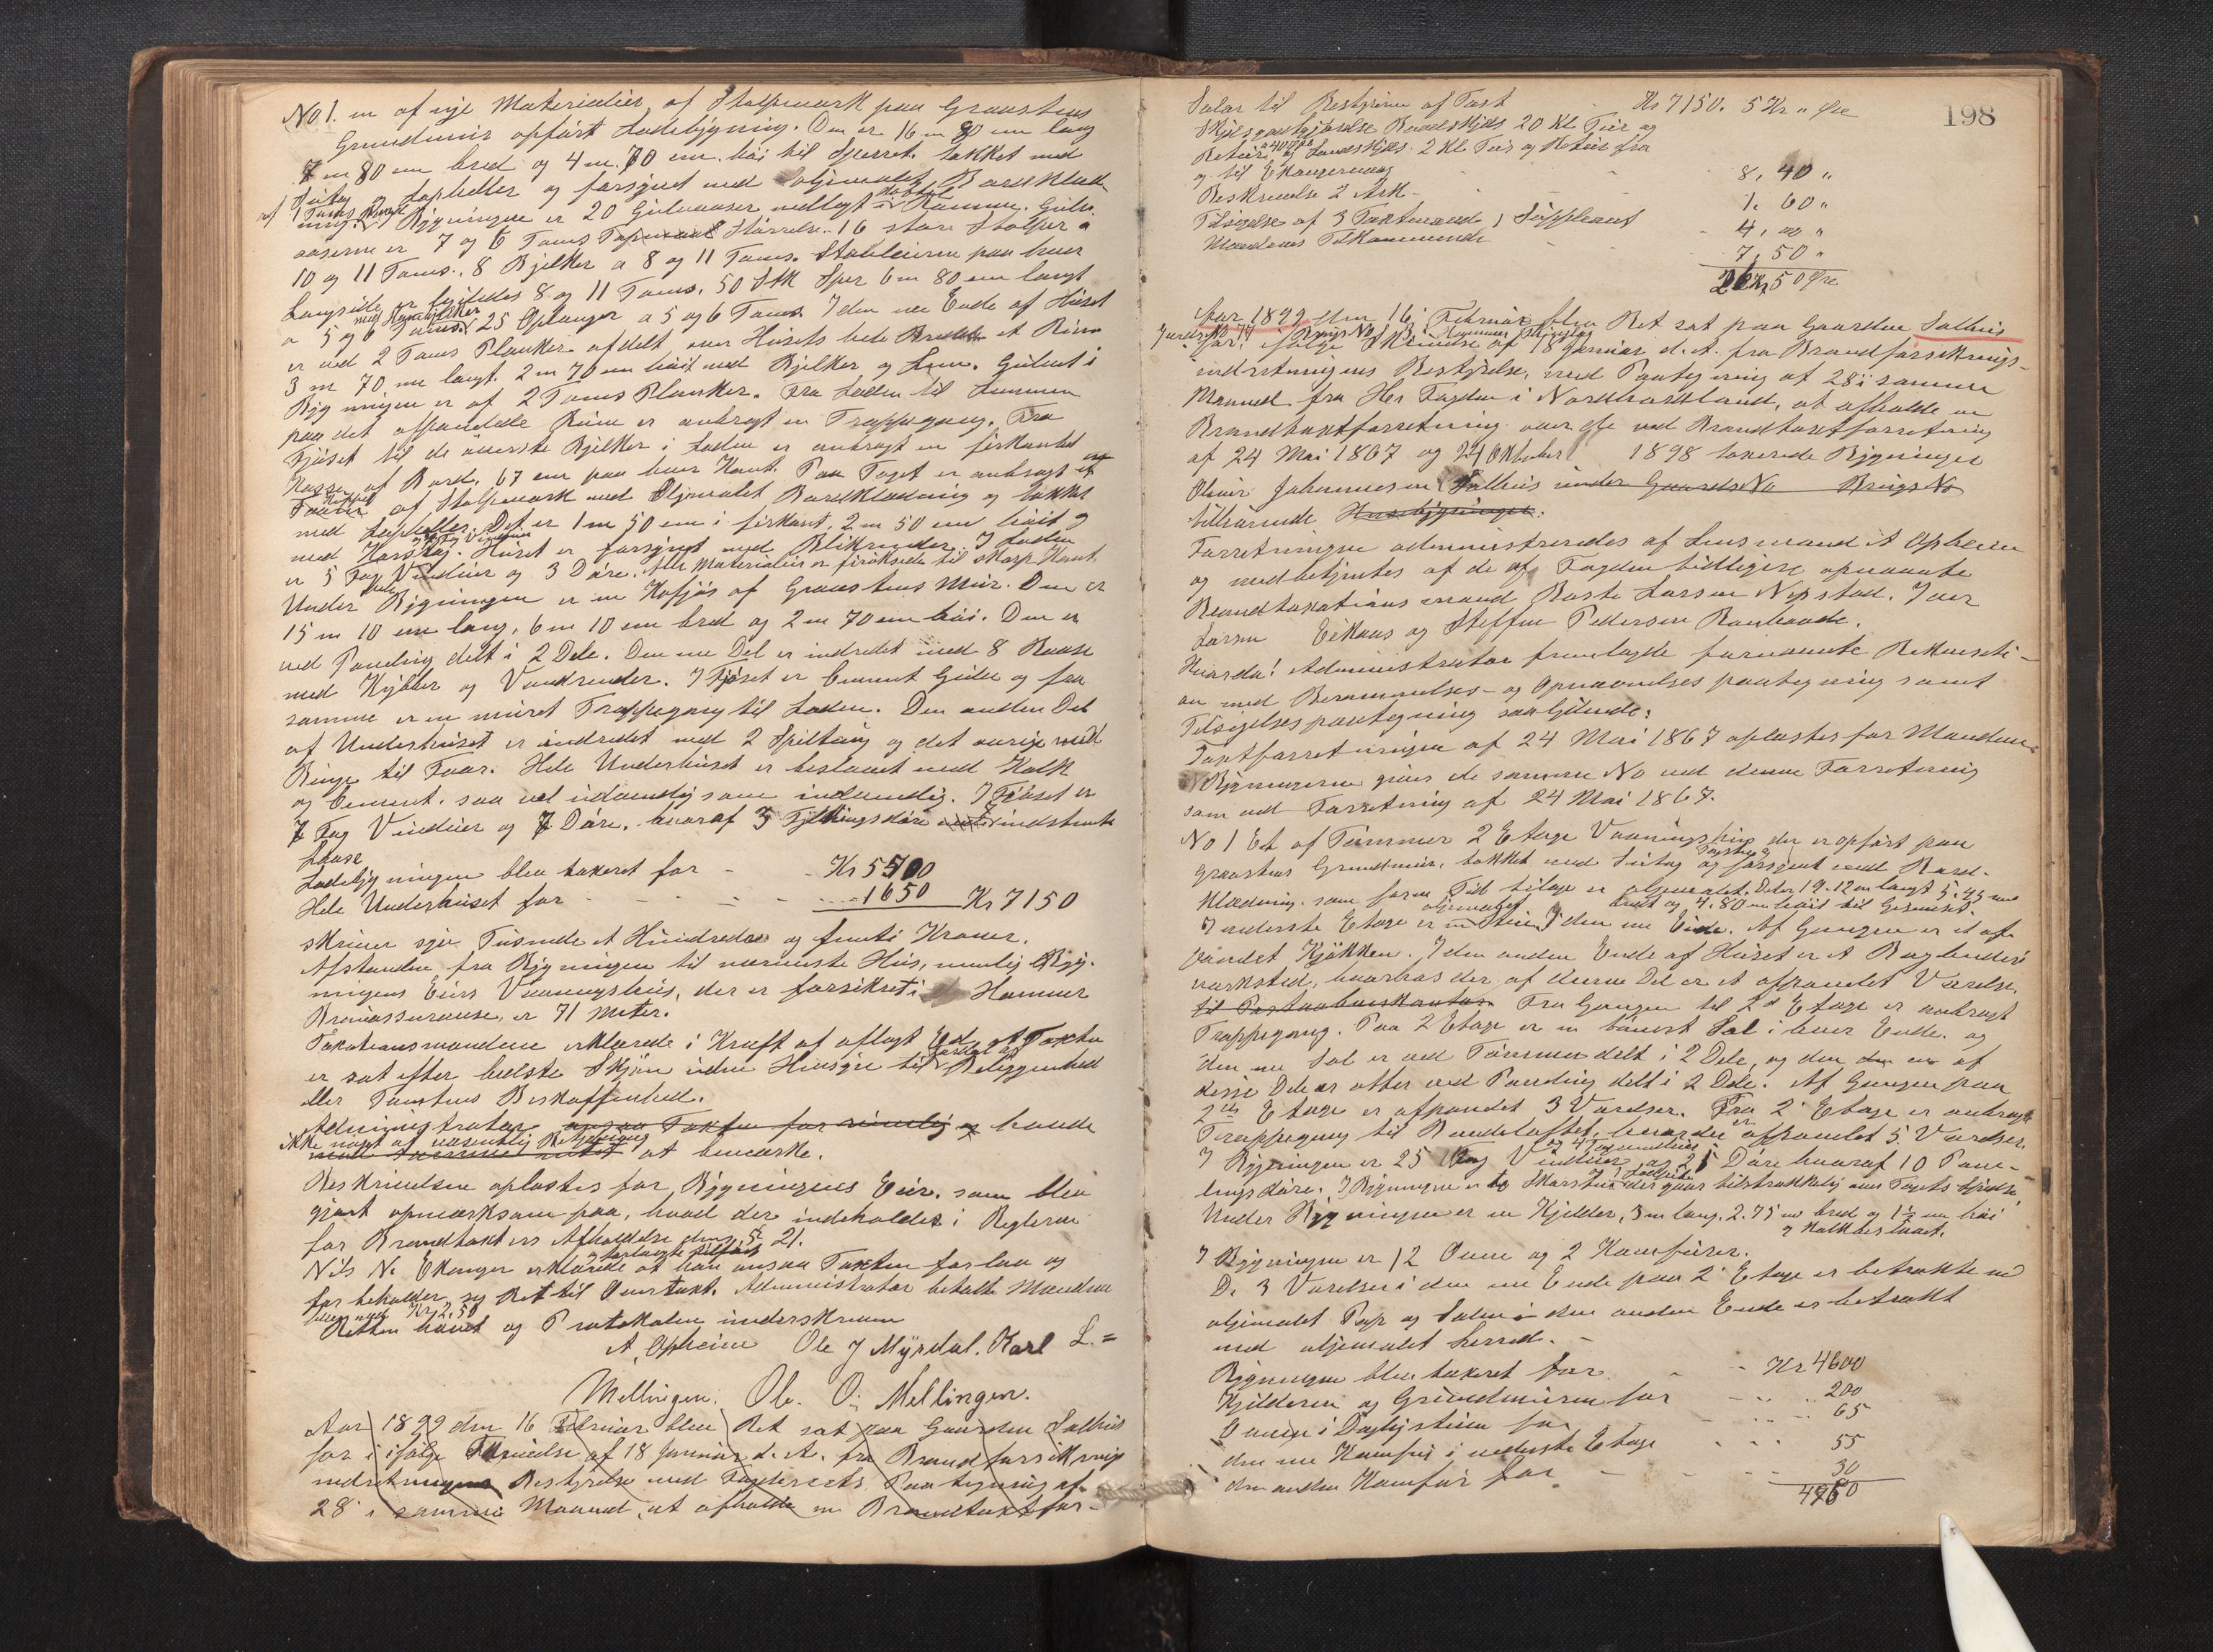 No 1. en af nye Materialier, af Stolpeverk paa Graastens
Grundmur opført Ladebygning. Den er 16 m 90 cm lang
7 m 80 cm bred og 4 m 70 cm. høi til Sperret. tækket med
Sutag og Lapheller og forsynet med oljemalet Bordklæd-
af 1 Toms Bord
ning. I Bygningen er 20 Gulvaaser nedlagt i dobbel Ramme. Gulv-
aaserne er 7 og 6 Toms Størrelse. 16 store Stolper a
10 og 11 Toms. 8 Bjelker a 8 og 11 Toms. Stavleierne paa hver
Langside er ligeledes 8 og 11 Toms. 50 Stk Sper 6 m 80 cm langt
med Hanebjelker
a 5 og 6 Toms. 25 Oplanger a 5 og 6 Toms. I den ene Ende af Huset
er ved 2 Toms Planker afdelt over Husets hele Bredde et Rum
3 m 70 cm langt. 2 m 70 cm høit med Bjelker og Lem. Gulvet i
Bygningen er af 2 Toms Planker. Fra Laden til Lemmen
paa det afpanelede Rum er anbragt en Trappegang. Fra
Fjøset til de øverste Bjelker i Laden er anbragt en firkantet
Kasse af Bord, 67 cm paa hver Kant. Paa Taget er anbragt et
af Stolpeverk med Oljemalet Bordklædning og tækket
med Lapheller. Det er 1 m 50 cm i firkant, 2 m 50 cm høit og
med Korstag. Huset er forsynet med Blikrender. I Laden
er 5 Fag Vinduer og 3 Døre. Alle Materialier er firøksede til skarp Kant.
Under hele Bygningen er en Kofjøs af Graastens Mur. Den er
15 m 10 cm lang, 6 m 10 cm bred og 2 m 70 cm høi. Den er
ved Paneling delt i 2 Dele. Den ene Del er indredet med 8 Baase
med Krybber og Vandrender. I Fjøset er Cement Gulv og fra
samme er en muret Trappegang til Laden. Den anden Del
af Underhuset er indredet med 2 Spiltaug og det øvrige med
Binge til Faar. Hele Underhuset er beslaaet med Kalk
og Cement. saa vel udvendig som indvendig. I Fjøset er
7 Fag Vinduer og 7 Døre, hvoraf 3 Fyldingsdøre indstukne
Laase
Ladebygningen blev taxeret for - - Kr 5500
Hele Underhuset for - - - - 1650 Kr 7150
skriver syv Tusende et Hundrede og femti Kroner.
Afstanden fra Bygningen til nærmeste Hus, nemlig Byg-
ningens Eiers Vaaningshus, der er forsikret i Hammer
Brandassurance, er 71 Meter.
Taxationsmændene erklærede i Kraft af aflagt Ed, at Taxten
er sat efter bedste Skjøn uden Hensyn til Fordel af Beliggenhed
eller Tomtens Beskaffenhed.
Administrator ansaa Taxten for rimelig og havde
ikke noget af væsentlig Betydning
at bemærke.
Beskrivelsen oplæstes for Bygningens Eier. som blev
gjort opmærksom paa, hvad der indeholdes i Reglerne
for Brandtaxters Afholdelse dens § 21.
Nils N. Ekanger erklærede at han ansaa Taxten for lav og
forbeholder sig Ret til Overtaxt. Administrator betalte Mændene
med Kr 2,50
Retten hævet og Protokolen underskreven
A. Opheim Ole J Myrdal. Karl L. =
Mellingen. Ole. O. Mellingen.
Aar 1899 den 16 Februar blev Ret sat paa Gaarden Salhus
for i ifølge Skrivelse af 18 Januar d. A. fra Brandforsikrings
indretningens Bestyrelse med Fogderiets Paategning af
28 i samme Maaned, at afholde en Brandtaxtfor-
198
Salær til Bestyreren af Taxt Kr 7150. 5 Kr „ Øre
Skydsgodtgjørelse Baadskyds 20 Kl Tur og
Retur a 40 Øre og Landskyds 2 Kl Tur og Retur fra
og til Ekangervaag - - - 8, 40 „
Beskrivelse 2 Ark - - - 1. 60 „
Tilsigelse af 3 Taxtmænd, 1 Suppleant - 4, 00 „
Mændenes Tilkommende - - - 7, 50 „
26 Kr 50 Øre
Aar 1899 den 16 Februar blev Ret sat paa Gaarden Salhus
Gaards No 77 Brugs No 1 i Hammer Thinglag
for, ifølge Skrivelse af 18 Januar d. A. fra Brandforsikrings-
indretningens Bestyrelse, med Paategning af 28 i samme
Maaned fra Her Fogden i Nordhordland, at afholde en
Brandtaxtforretning over de ved Brandtaxtforretning
af 24 Mai 1867 og 24 Oktober 1898 taxerede Bygninger
Oliver Johannesen Salhus under Gaards No Brugs No
tilhørende Husebygninger.
Forretningen administreredes af Lensmand A Opheim
og medbetjentes af de af Fogden tidligere opnævnte
Brandtaxationsmænd Baste Larsen Nepstad. Iver
Larsen Eikaas og Steffen Pedersen Rambaade.
Hvorda! Administrator fremlagde fornævnte Rekvisiti-
on med Berammelses- og Opnævnelsespaategning samt
Tilsigelsespaategning saalydende:
Taxtforretningen af 24 Mai 1867 oplæstes for Mændene
Bygningerne gives de samme No ved denne Forretning
som ved Forretning af 24 Mai 1867.
No 1 Et af Tømmer 2 Etage Vaaningshus der er opført paa
Graastens Grundmur, tækket med Sutag Tagsten og forsynet med Bord-
klædning. som for en Tid tilbage er oljemalet. Det er 19.12 m langt 5.45 m
bredt og 4.80 m høit til Gesimset.
I underste Etage er en oljemalet Stue i den ene Ende. Af Gangen er et af-
panelet Kjøkken. I den anden Ende af Huset er et Bogbinderi
verksted, hvorhos der af denne Del er et afpanelet Værelse.
til Postaabnerkontor. Fra Gangen til 2d Etage er anbragt
Trappegang. Paa 2 Etage er en tømret Sal i hver Ende. og
den ene Sal er ved Tømmer delt i 2 Dele, og den ene af
disse Dele er atter ved Paneling delt i 2 Dele. Af Gangen paa
2den Etage er afpanelet 3 Værelser. Fra 2' Etage er anbragt
Trappegang til Mørkeloftet, hvorder er afpanelet 5 Værelser.
I Bygningen er 25 Fag Vinduer og 4 Tagvinduer og 21 Døre hvoraf 10 Pane-
lingsdøre. I Bygningen er to Skorstene der gaar tilstrækkelig over Tagets Høide.
Under Bygningen er en Kjelder, 3 m lang. 2.75 m bred og 1½ m høi
og Kalkbeslaaet.
I Bygningen er 12 Ovne og 2 Komfurer.
De 3 Værelser i den ene Ende paa 2' Etage er betrukket med
oljemalet Pap og Salen i den anden Ende er betrukt
med oljemalet Lerred. -
Bygningen blev taxeret for - - Kr 4600
Kjelderen og Grundmuren for - - 200
Ovnen i Daglystuen for - - 65
den ene Komfur i nederste Etage - - 55
den anden Komfur for - - - 30
4950